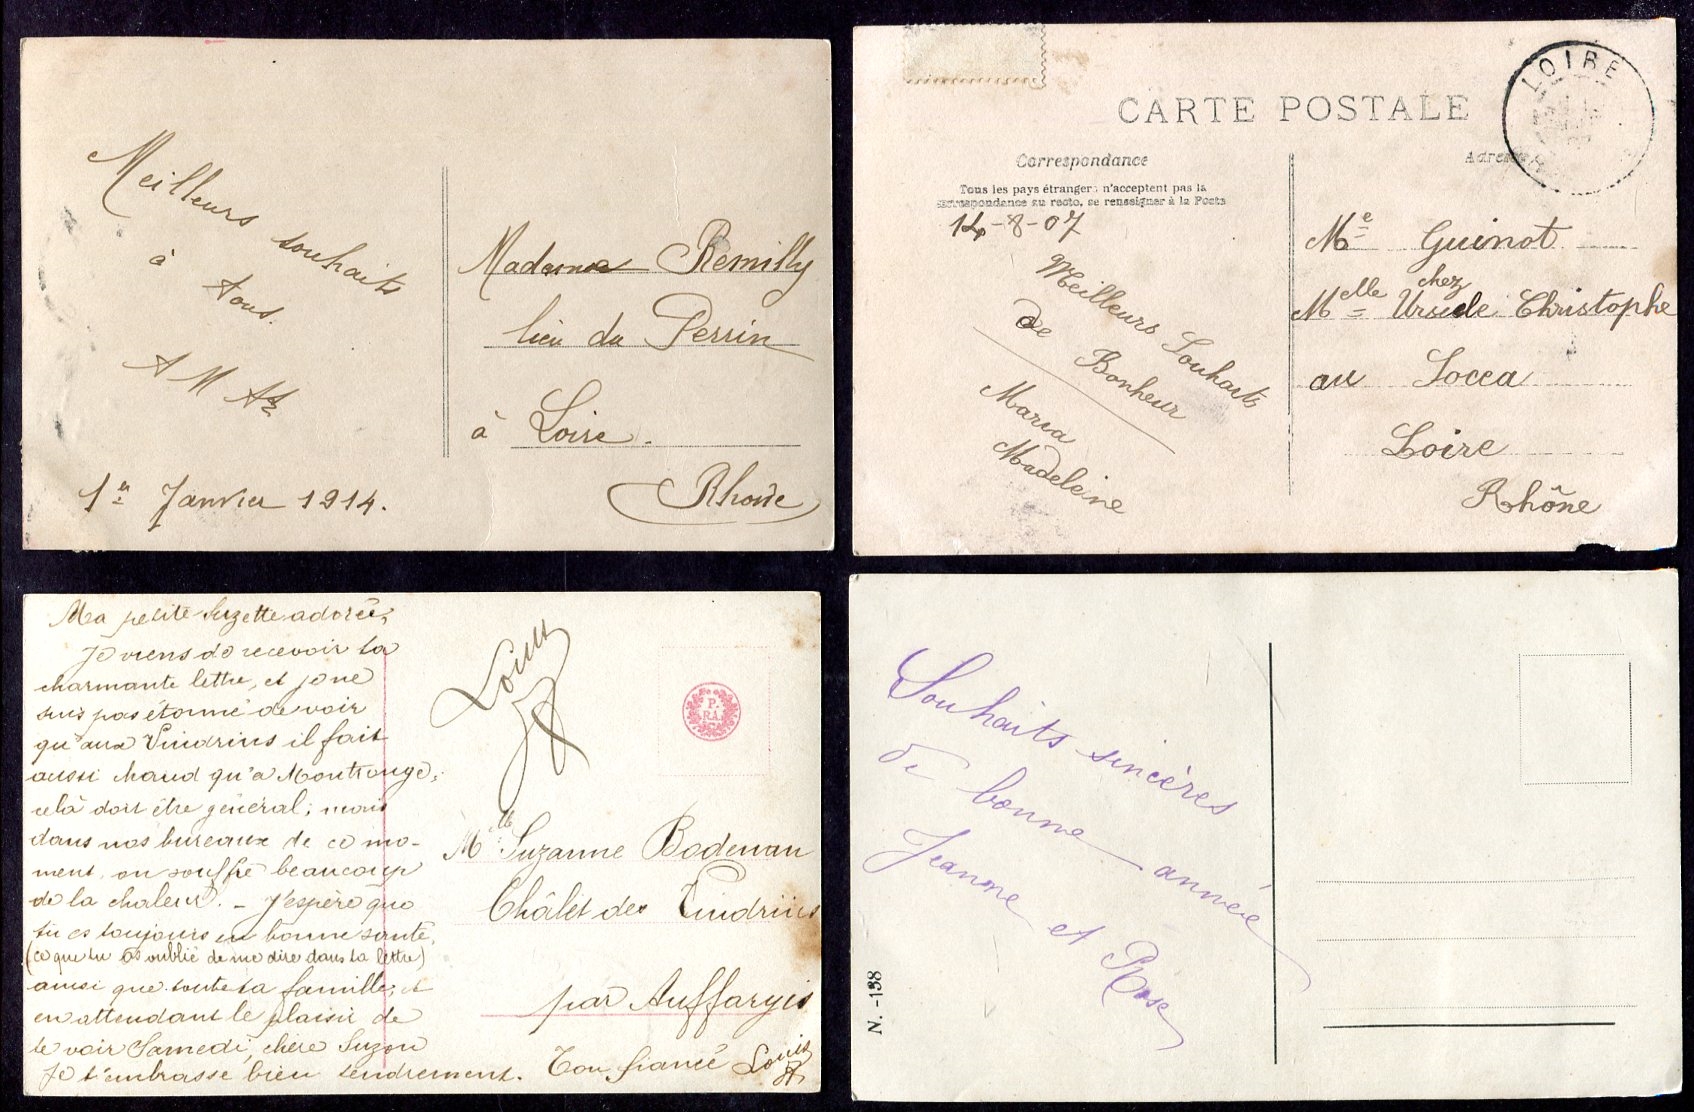 Meilleurs souhaits
à
tous.
A M
1er Janvier 1914.
Madame Remilly
lieu du Perrin
à Loire.
Rhône
CARTE POSTALE
LOIRE
Correspondance
Adresse
Tous les pays étrangers n'acceptent pas la
correspondance au recto, se renseigner à la Poste
14-8-07
Meilleurs Souhaits
de Bonheur
Maria
Madeleine
Me Guinot
chez
Melle Ursule Christophe
au Socca
Loire
Rhône
Ma petite Suzette adorée,
Je viens de recevoir ta
charmante lettre, et je ne
suis pas étonné de voir
qu'aux Vindrins il fait
aussi chaud qu'à Montrouge,
celà doit être général; mais
dans nos bureaux de ce mo-
ment, on souffre beaucoup
de la chaleur. - J'espère que
tu es toujours en bonne santé,
(ce que tu as oublié de me dire dans ta lettre)
ainsi que toute ta famille, et
en attendant le plaisir de
te voir Samedi, chère Suzon
Je t'embrasse bien tendrement. Ton fiancé Louis
Louis
P.
RA.
Melle Suzanne Bodenan
Châlet des Vindrins
par Auffargis
Souhaits sincères
de bonne année
Jeanne et Rose
N. -138